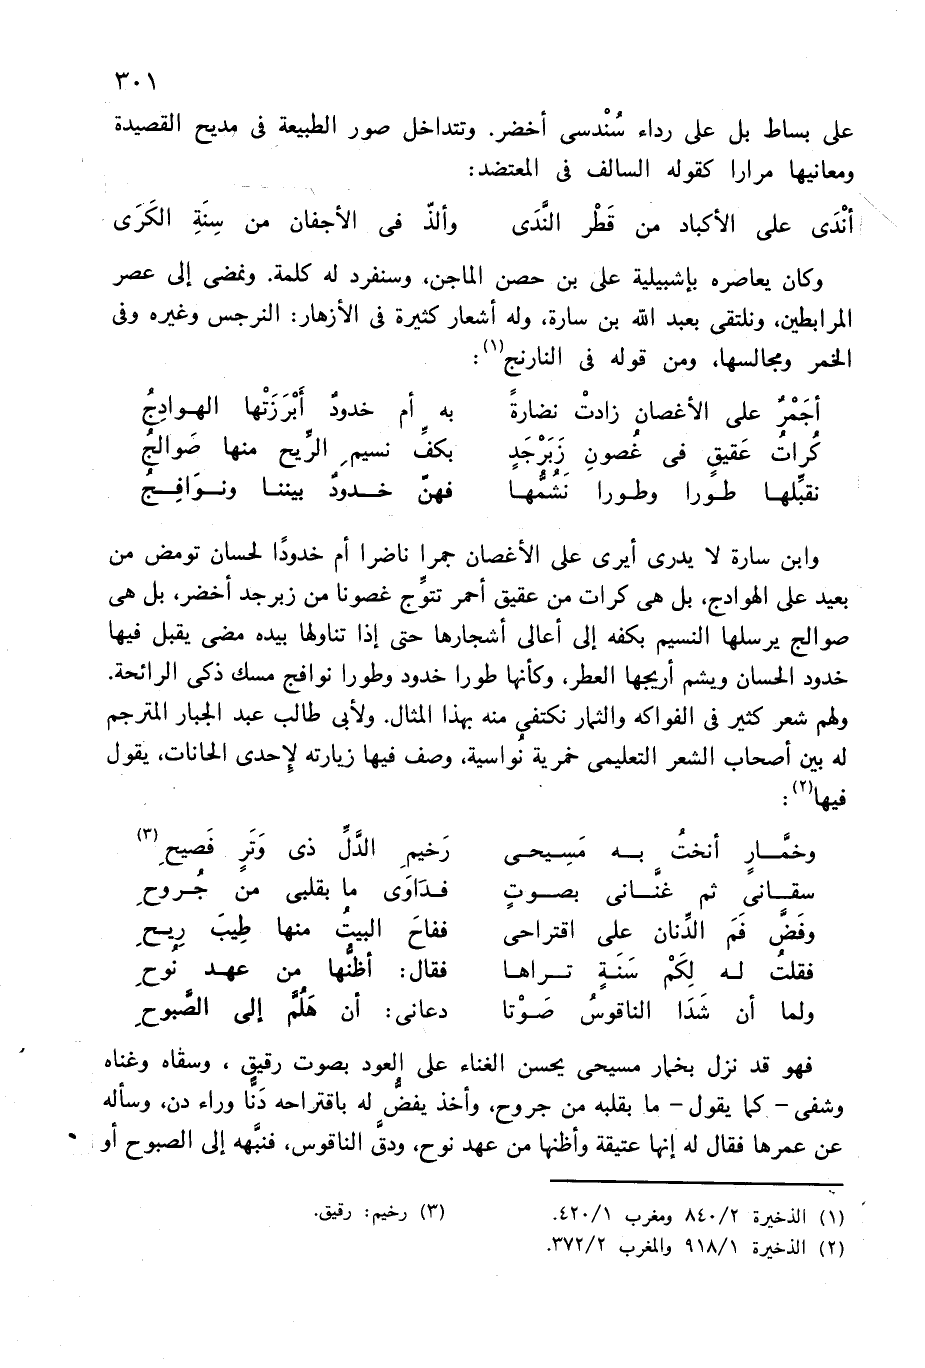 ٣٠١
على بساط بل على رداء سُنْدسى أخضر. وتتداخل صور الطبيعة فى مديح القصيدة
ومعانيها مرارا كقوله السالف فى المعتضد:
أنْدَى على الأكباد من قَطْر النَّدَى وألذّ فى الأجفان من سِنَةِ الكَرَى
وكان يعاصره بإشبيلية على بن حصن الماجن، وسنفرد له كلمة. ونمضى إلى عصر
المرابطين، ونلتقى بعبد الله بن سارة، وله أشعار كثيرة فى الأزهار: النرجس وغيره وفى
الخمر ومجالسها، ومن قوله فى النارنج(١):
أجَمْرٌ على الأغصان زادتْ نضارةً به أم خدودٌ أَبْرَزَتْها الهوادِجُ
كُراتُ عَقيقٍ فى غُصونِ زَبَرْجَدٍ بكفِّ نسيمِ الرِّيح منها صَوالجُ
نقبِّلها طورا وطورا نَشُمُّها فهنّ خدودٌ بيننا ونوَافِجُ
وابن سارة لا يدرى أيرى على الأغصان جمرا ناضرا أم خدودًا لحسان تومض من
بعيد على الهوادج، بل هى كرات من عقيق أحمر تتوِّج غصونا من زبرجد أخضر، بل هى
صوالج يرسلها النسيم بكفه إلى أعالى أشجارها حتى إذا تناولها بيده مضى يقبل فيها
خدود الحسان ويشم أريجها العطر، وكأنها طورا خدود وطورا نوافج مسك ذكى الرائحة.
ولهم شعر كثير فى الفواكه والثمار نكتفى منه بهذا المثال. ولأبى طالب عبد الجبار المترجم
له بين أصحاب الشعر التعليمى خمرية نُواسية، وصف فيها زيارته لإحدى الحانات، يقول
فيها(٢):
وخمَّارٍ أنختُ به مَسِيحى رَخيمِ الدَّلِّ ذى وَتَرٍ فَصيحِ(٣)
سقانى ثم غنَّانى بصوتٍ فدَاوَى ما بقلبى من جُروحِ
وفَضَّ فَمَ الدِّنان على اقتراحى ففاحَ البيتُ منها طِيبَ رِيحِ
فقلتُ له لِكَمْ سَنَةٍ تراها فقال: أظنُّها من عهد نُوحِ
ولما أن شَدَا الناقوسُ صَوْتا دعانى: أن هَلُمَّ إلى الصَّبوحِ
فهو قد نزل بخمار مسيحى يحسن الغناء على العود بصوت رقيق ، وسقاه وغناه
وشفى - كما يقول - ما بقلبه من جروح، وأخذ يفضُّ له باقتراحه دَنًّا وراء دن، وسأله
عن عمرها فقال له إنها عتيقة وأظنها من عهد نوح، ودقَّ الناقوس، فنبَّهه إلى الصبوح أو
(١) الذخيرة ٨٤٠/٢ ومغرب ٤٢٠/١.
(٢) الذخيرة ٩١٨/١ والمغرب ٣٧٢/٢.
(٣) رخيم: رقيق.